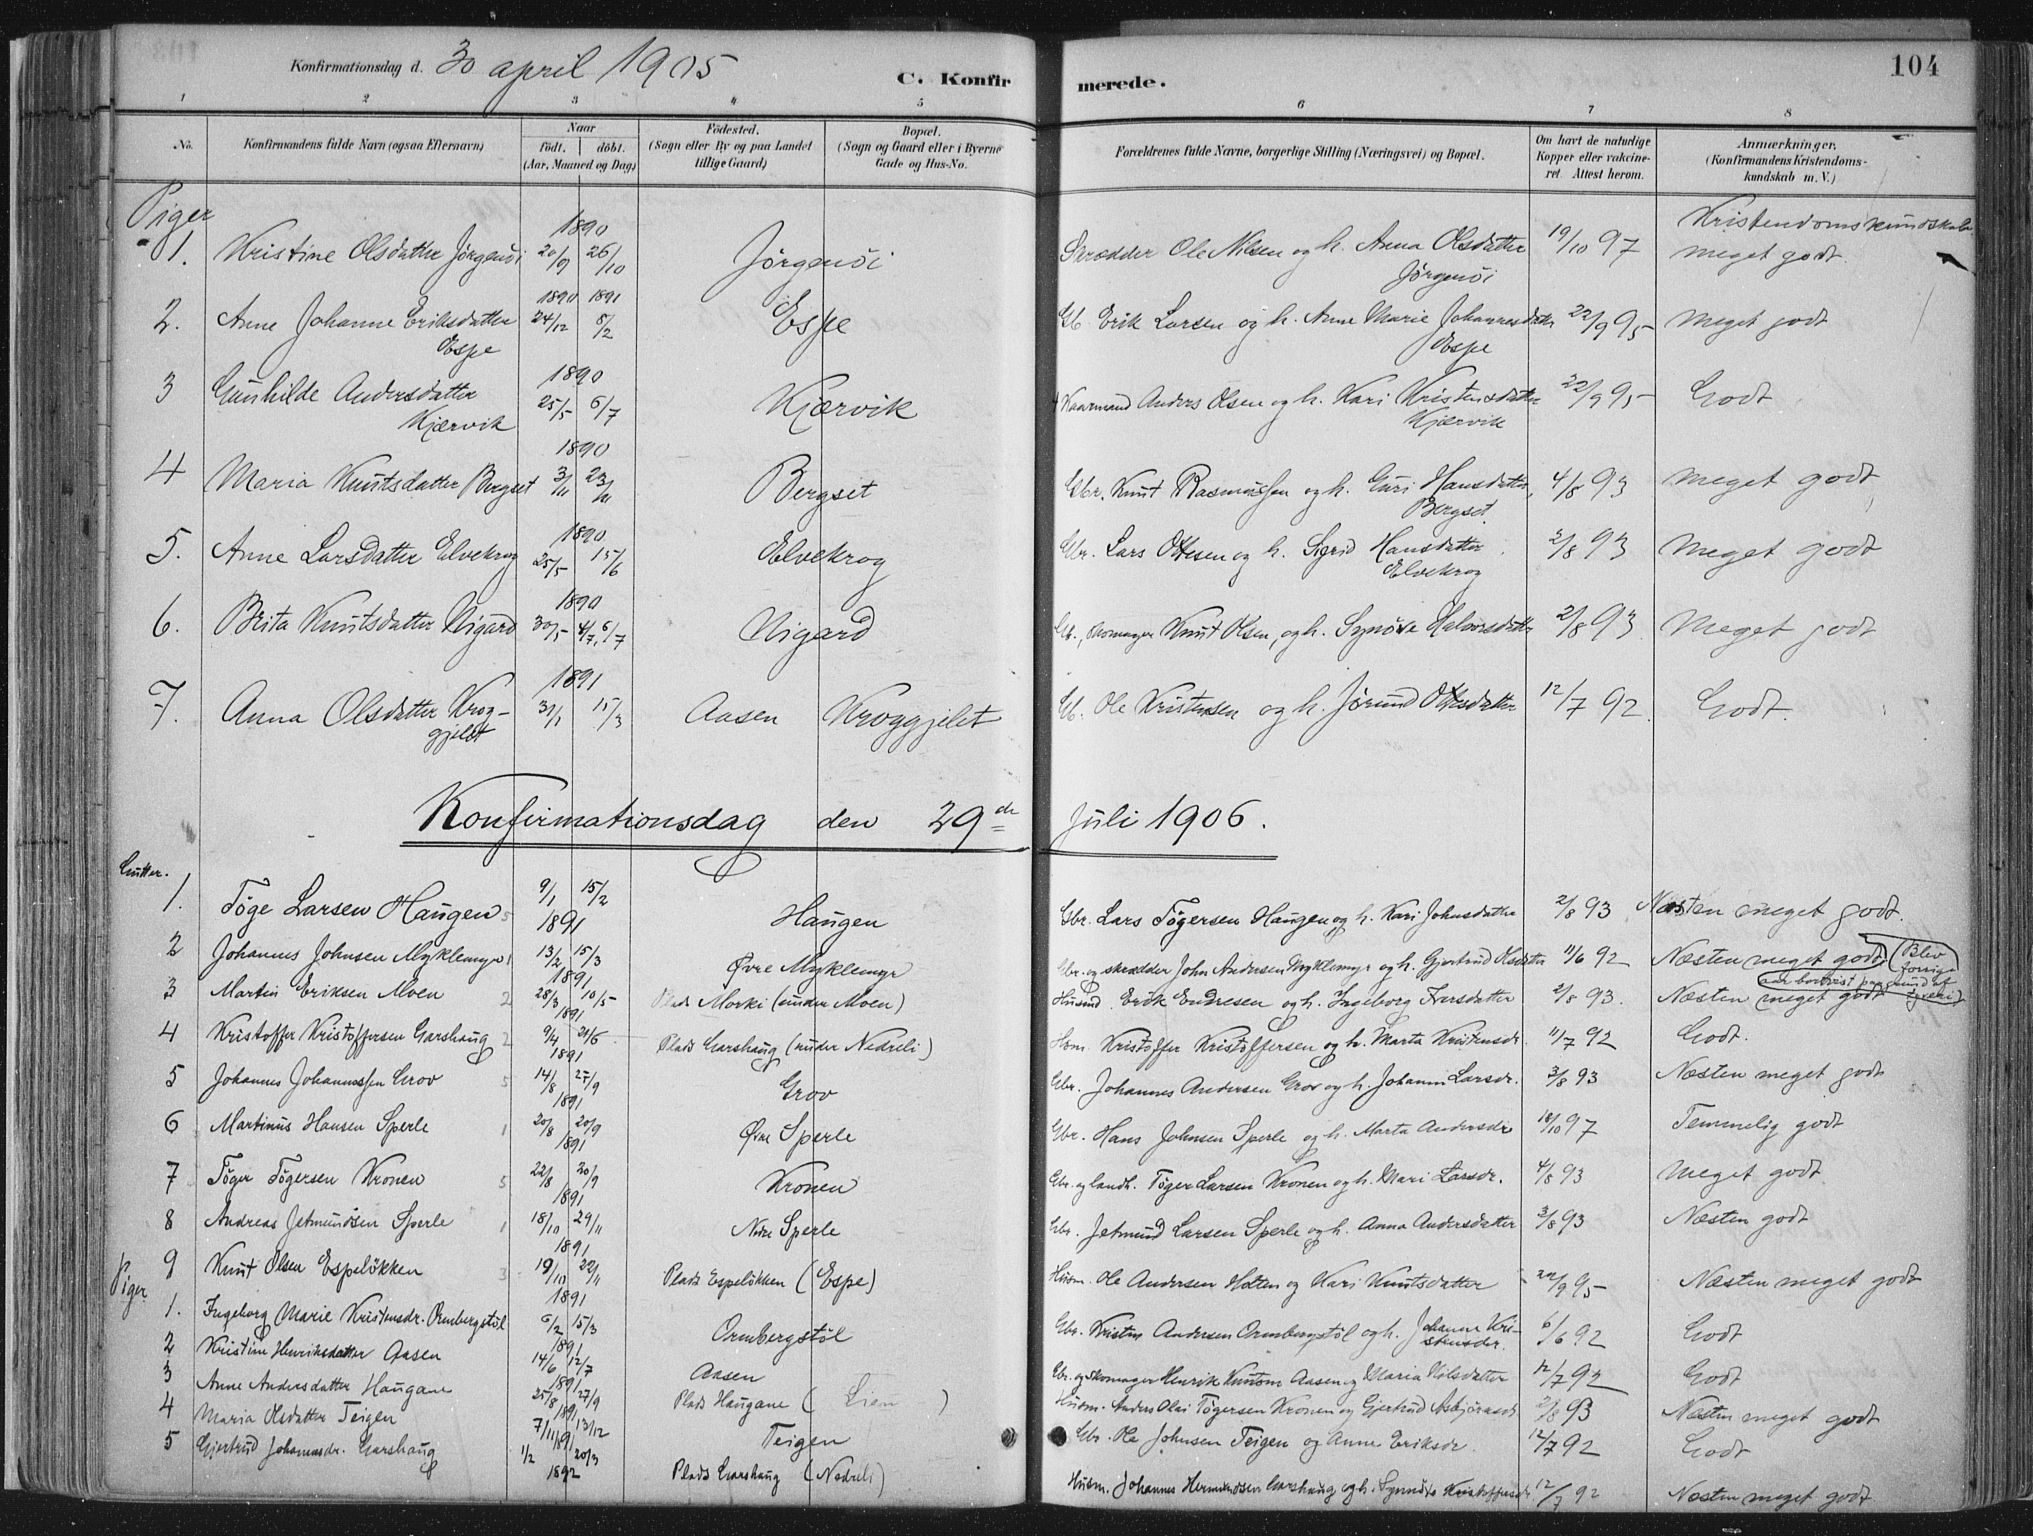 104
Konfirmationsdag d. 30 april 1905 C. Konfirmerede.
1 2 3 4 5 6 7 8
No. Konfirmandens fulde Navn (ogsaa Efternavn) Naar födt. döbt. (Aar, Maaned og Dag) Födested. (Sogn eller By og paa Landet tillige Gaard) Bopæl. (Sogn og Gaard eller i Byerne Gade og Hus-No. Forældrenes fulde Navne, borgerlige Stilling (Næringsvei) og Bopæl. Om havt de naturlige Kopper eller vakcineret. Attest herom. Anmærkninger. (Konfirmandens Kristendomskundskab m. V.)
Piger
1. Kristine Olsdatter Jørgenøi 1890 20/9 26/10 Jørgenøi Skrædder Ole Nilsen og h. Anna Olsdatter Jørgenøi 19/10 97 Kristendomskundskab meget godt
2. Anne Johanne Eriksdatter Espe 1890 24/12 1891 8/2 Espe Gb. Erik Larsen og h. Anne Marie Johannesdatter Espe 22/9 95 Meget godt
3 Gunhilde Andersdatter Kjærvik 1890 25/5 6/7 Kjærvik Kaarmand Anders Olsen og h. Kari Kristensdatter Kjærvik 22/9 95 Godt
4 Maria Knutsdatter Bergset 1890 3/11 23/11 Bergset Gbr. Knut Rasmussen og h. Guri Hansdatter, Bergset. 4/8 93 Meget godt
5. Anne Larsdatter Elvekrog 1890 25/5 15/6 Elvekrog Gbr. Lars Ottesen og h. Sigrid Hansdatter Elvekrog 2/8 93 Meget godt
6. Brita Knutsdatter Nigard 1890 30/5 4/7, 6/7 Nigard Gb., skomager Knut Olsen, og h. Synøve Halvorsdatter 2/8 93 Meget godt
7. Anna Olsdatter Kroggjelet 1891 31/1 15/3 Aasen Kroggjelet Gb. Ole Kristensen og h. Jørund Ottesdatter 12/7 92. Godt.
Konfirmationsdag den 29de Juli 1906.
Gutter.
1. Tøge Larsen Haugen 5 9/1 15/2 1891 Haugen Gbr. Lars Tøgersen Haugen og h. Kari Johnsdatter 2/8 93 Næsten meget godt.
2 Johannes Johnsen Myklemyr 1 13/2 15/3 1891 Øvre Myklemyr Gbr. og skrædder John Andersen Myklemyr og h. Gjertrud Olsdatter 11/6 92 Næsten meget godt (Blev forrige aar bortvist paa grund af tyveri)
3 Martin Eriksen Moen 2 28/3 10/5 1891 Plads Morki (under Moen) Husmd. Erik Endresen og h. Ingeborg Iversdatter 2/8 93. Næsten meget godt
4 Kristoffer Kristoffersen Garshaug 2 9/4 21/6 1891 Plads Garshaug (under Nedreli) Hsm. Kristoffer Kristoffersen og h. Marta Kristensdr. 11/7 92 Godt.
5 Johannes Johannessen Grov 5 14/8 27/9 1891 Grov Gbr. Johannes Andersen Grov og h. Johanne Larsdr. 3/8 93 Næsten meget godt
6 Martinus Hansen Sperle 1 20/8 20/9 1891 Øvre Sperle Gbr. Hans Johnsen Sperle og h. Marta Andersdr 18/10 97 Temmelig godt
7 Tøger Tøgersen Kronen 5 22/8 20/9 1891 Kronen Gbr. og landh. Tøger Larsen Kronen og h. Mari Larsdr. 4/8 93 Meget godt
8 Andreas Jetmundsen Sperle 1 18/10 29/11 1891 Nedre Sperle Gbr. Jetmund Larsen Sperle og h. Anna Andersdatter 3/8 93 Næsten godt
9 Knut Olsen Espeløkken 3 19/10 22/11 1891 Plads Espeløkken (Espe) Husm. Ole Andersen Hatten og Kari Knutsdatter 22/9 95 Næsten meget godt
Piger
1. Ingeborg Marie Kristensdr. Ormbergstøl 6/2 15/3 1891 Ormbergstøl Gbr. Kristen Andersen Ormbergstøl og h. Johanne Kristensdr. 6/6 92 Godt
2 Kristine Henriksdatter Aasen 14/6 12/7 1891 Aasen Gbr. og skomager Henrik Knutsen Aasen og Maria Nilsdatter 12/7 92 Godt
3 Anne Andersdatter Haugane 25/8 27/9 1891 Plads Haugane ( Lien ) Husm. Anders Olai Tøgersen Kronen og Gjertrud Asbjørnsdr. 2/8 93 Næsten meget godt
4 Maria Olsdatter Teigen 7/11 13/12 1891 Teigen Gbr. Ole Johnsen Teigen og Anne Eriksdr. 12/7 92 Godt
5 Gjertrud Johannesdr. Garshaug 1/2 20/3 1892 Plads Garshaug (Nedreli) Husm. Johannes Hermundsen Garshaug og h. Synneve Kristoffersdr. 12/7 92 Næsten meget godt